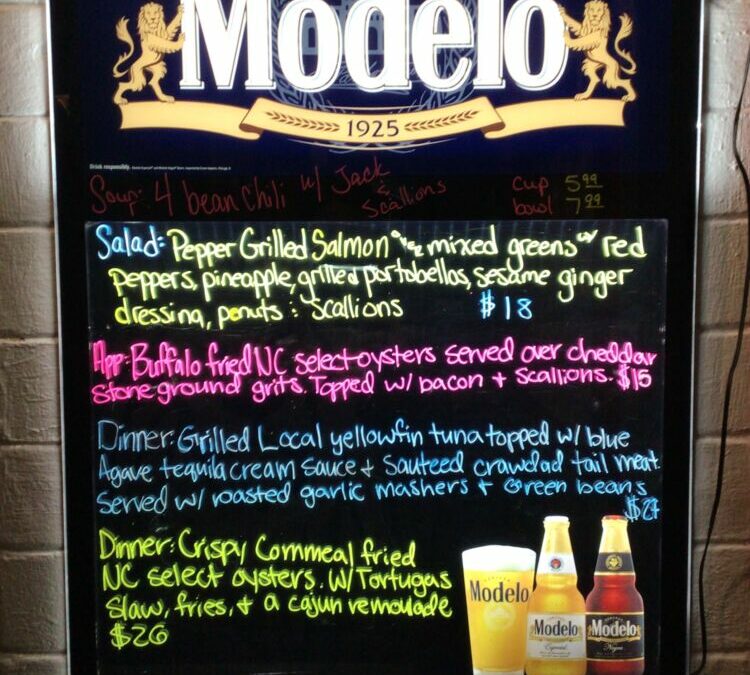 Modelo
1925
Drink responsibly.
Soup: 4 bean chili w/ Jack & Scallions
cup 5.99
bowl 7.99
Salad: Pepper Grilled Salmon over mixed greens w/ red
peppers, pineapple, grilled portobellos, sesame ginger
dressing, penuts & scallions $18
App: Buffalo fried NC select oysters served over cheddar
Stone ground grits. Topped w/ bacon + scallions. $15
Dinner: Grilled Local yellowfin tuna topped w/ blue
Agave tequila cream sauce + Sauteed crawdad tail meat.
Served w/ roasted garlic mashers + Green beans
$27
Dinner: Crispy Cornmeal fried
NC select oysters. w/ Tortugas
Slaw, fries, + a cajun remoulade
$26
Modelo
Modelo
Especial
Modelo
Negra